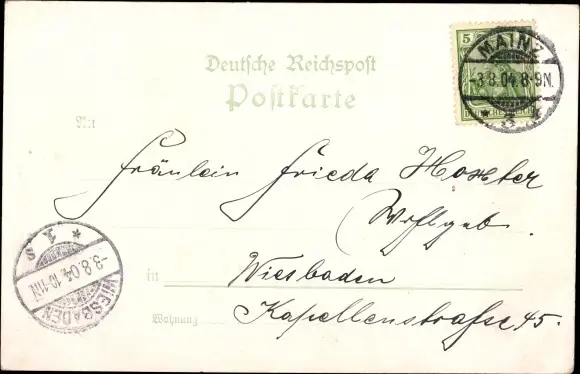 Deutsche Reichspost
Postkarte
5
MAINZ
-3.8.04.8-9N.
* 3 *
An
Fräulein Frieda
Wohlgeb.
in Wiesbaden
Wohnung Kapellenstraße 45.
* 1. S
-3.8.04.10-11N
WIESBADEN